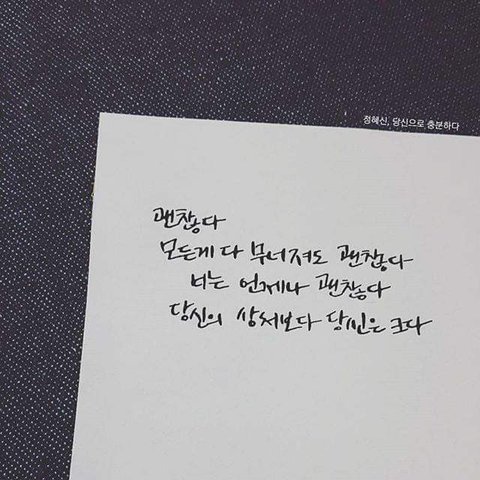 정혜신, 당신으로 충분하다
괜찮다
모든게 다 무너져도 괜찮다
너는 언제나 괜찮다
당신의 상처보다 당신은 크다